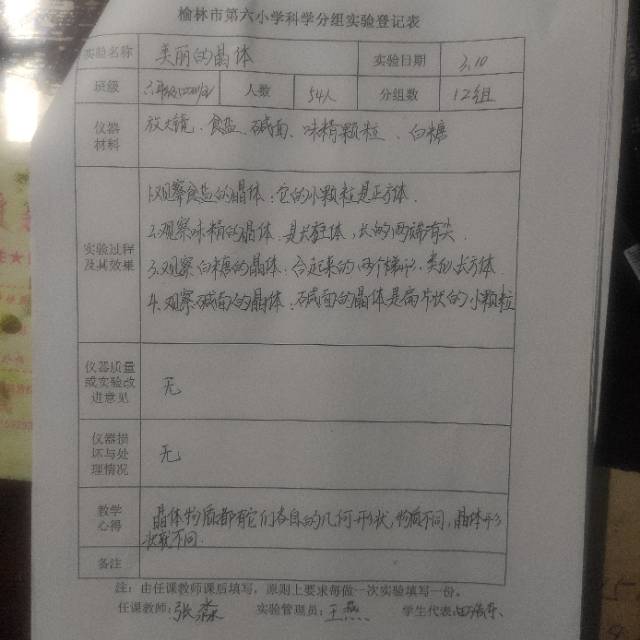 榆林市第六小学科学分组实验登记表
实验名称 美丽的晶体 实验日期 3.10
班级 人数 54人 分组数 12组
仪器材料 放大镜、食盐、碱面、味精颗粒、白糖
实验过程及其效果
1.观察食盐的晶体,它的小颗粒是立方体.
2.观察味精的晶体,是长柱体,长的两端有尖
3.观察白糖的晶体,合起来的两个梯形,类似长方体.
4.观察碱面的晶体,碱面的晶体是扁片状的小颗粒
仪器质量或实验改进意见 无
仪器损坏与处理情况 无
教学心得 晶体物质都有它们各自的几何形状,物质不同,晶体形
状不同.
备注
注:由任课教师课后填写,原则上要求每做一次实验填写一份。
任课教师:张森 实验管理员:王燕 学生代表